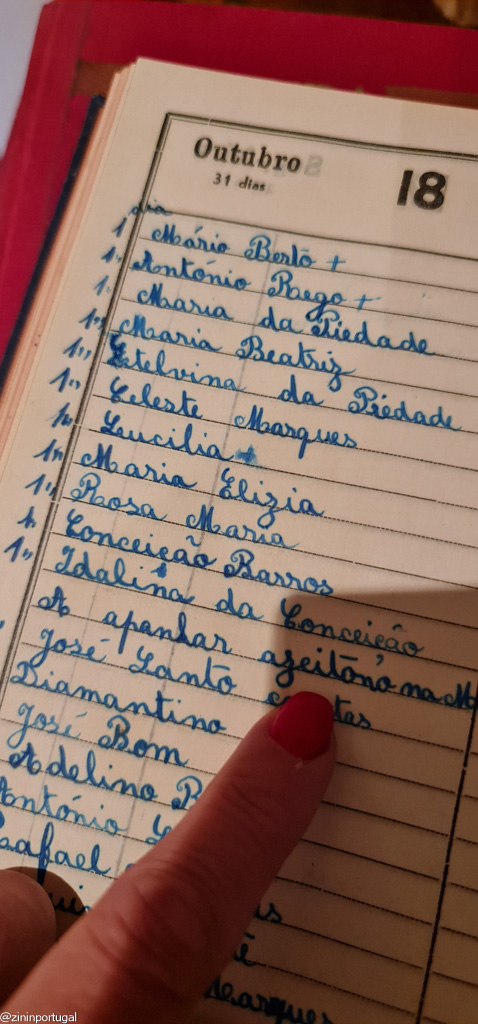 Outubro
31 dias
18
dia
1 Mário Berto +
1" António Rego +
1" Maria da Piedade
1" Maria Beatriz
1" Etelvina da Piedade
1" Celeste Marques
1" Lucilia +
1" Maria Elizia
1" Rosa Maria
1 Conceição Barros
1" Idalina da Conceição
A apanhar azeitono na M
José Santo
Diamantino
José Bom
Adelino
António
Rafael
Marques
@zininportugal